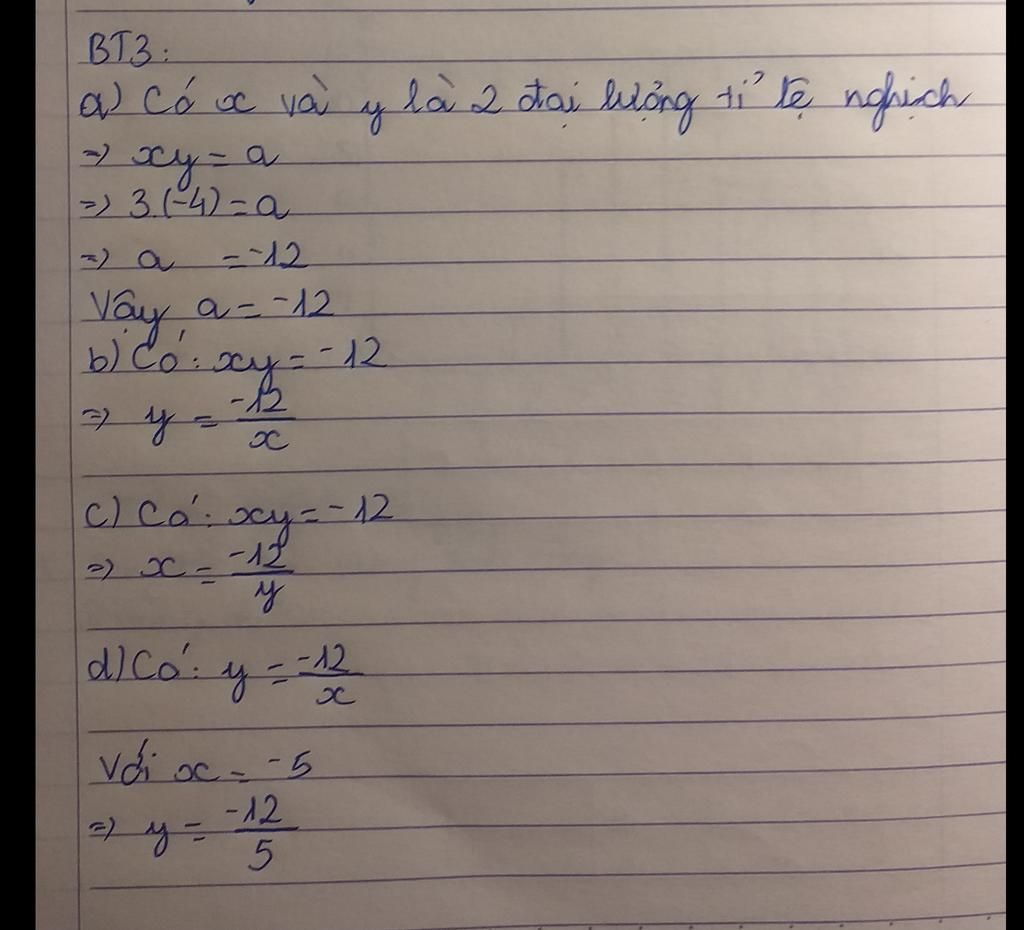 BT3:
a) Có x và y là 2 đại lượng tỉ lệ nghịch
=> xy = a
=> 3.(-4) = a
=> a = -12
Vậy a = -12
b) Có: xy = -12
=> y = -12/x
c) Có: xy = -12
=> x = -12/y
d) Có: y = -12/x
Với x = -5
=> y = -12/5